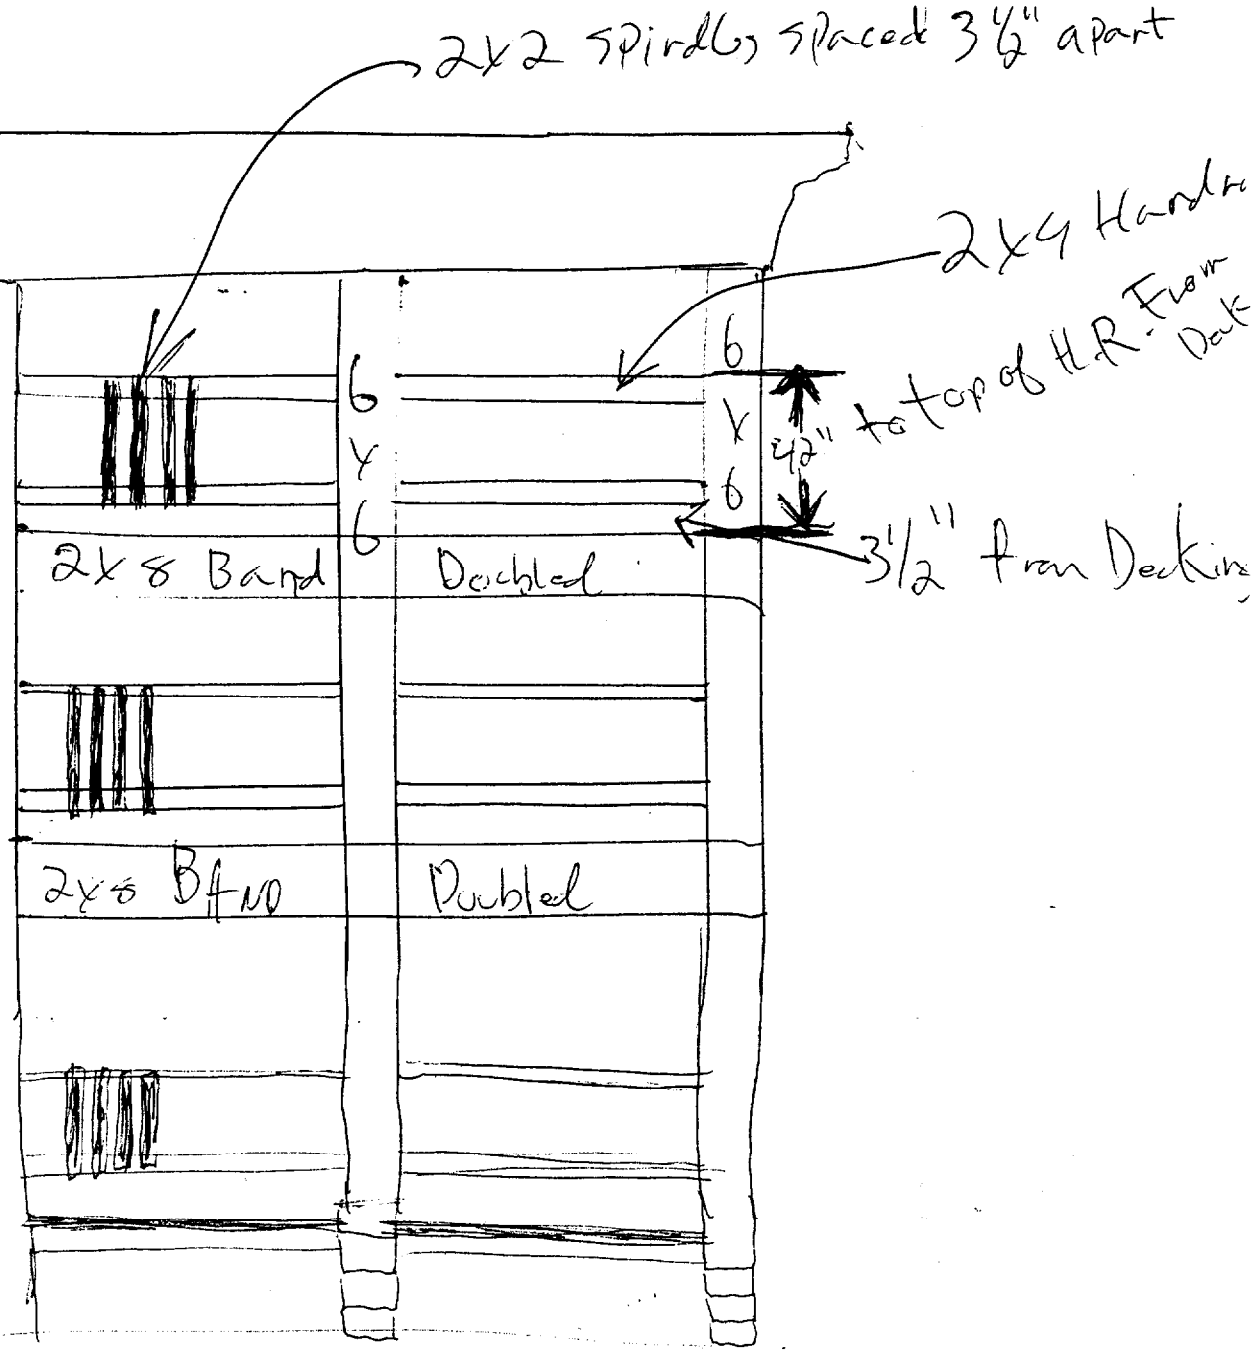 2x2 spindles spaced 3 1/2" apart
2x4 Handra
42" to top of H.R. From
Deck
6
x
6
6
x
6
3 1/2" from Decking
2x8 Band Doubled
2x8 BAND Doubled